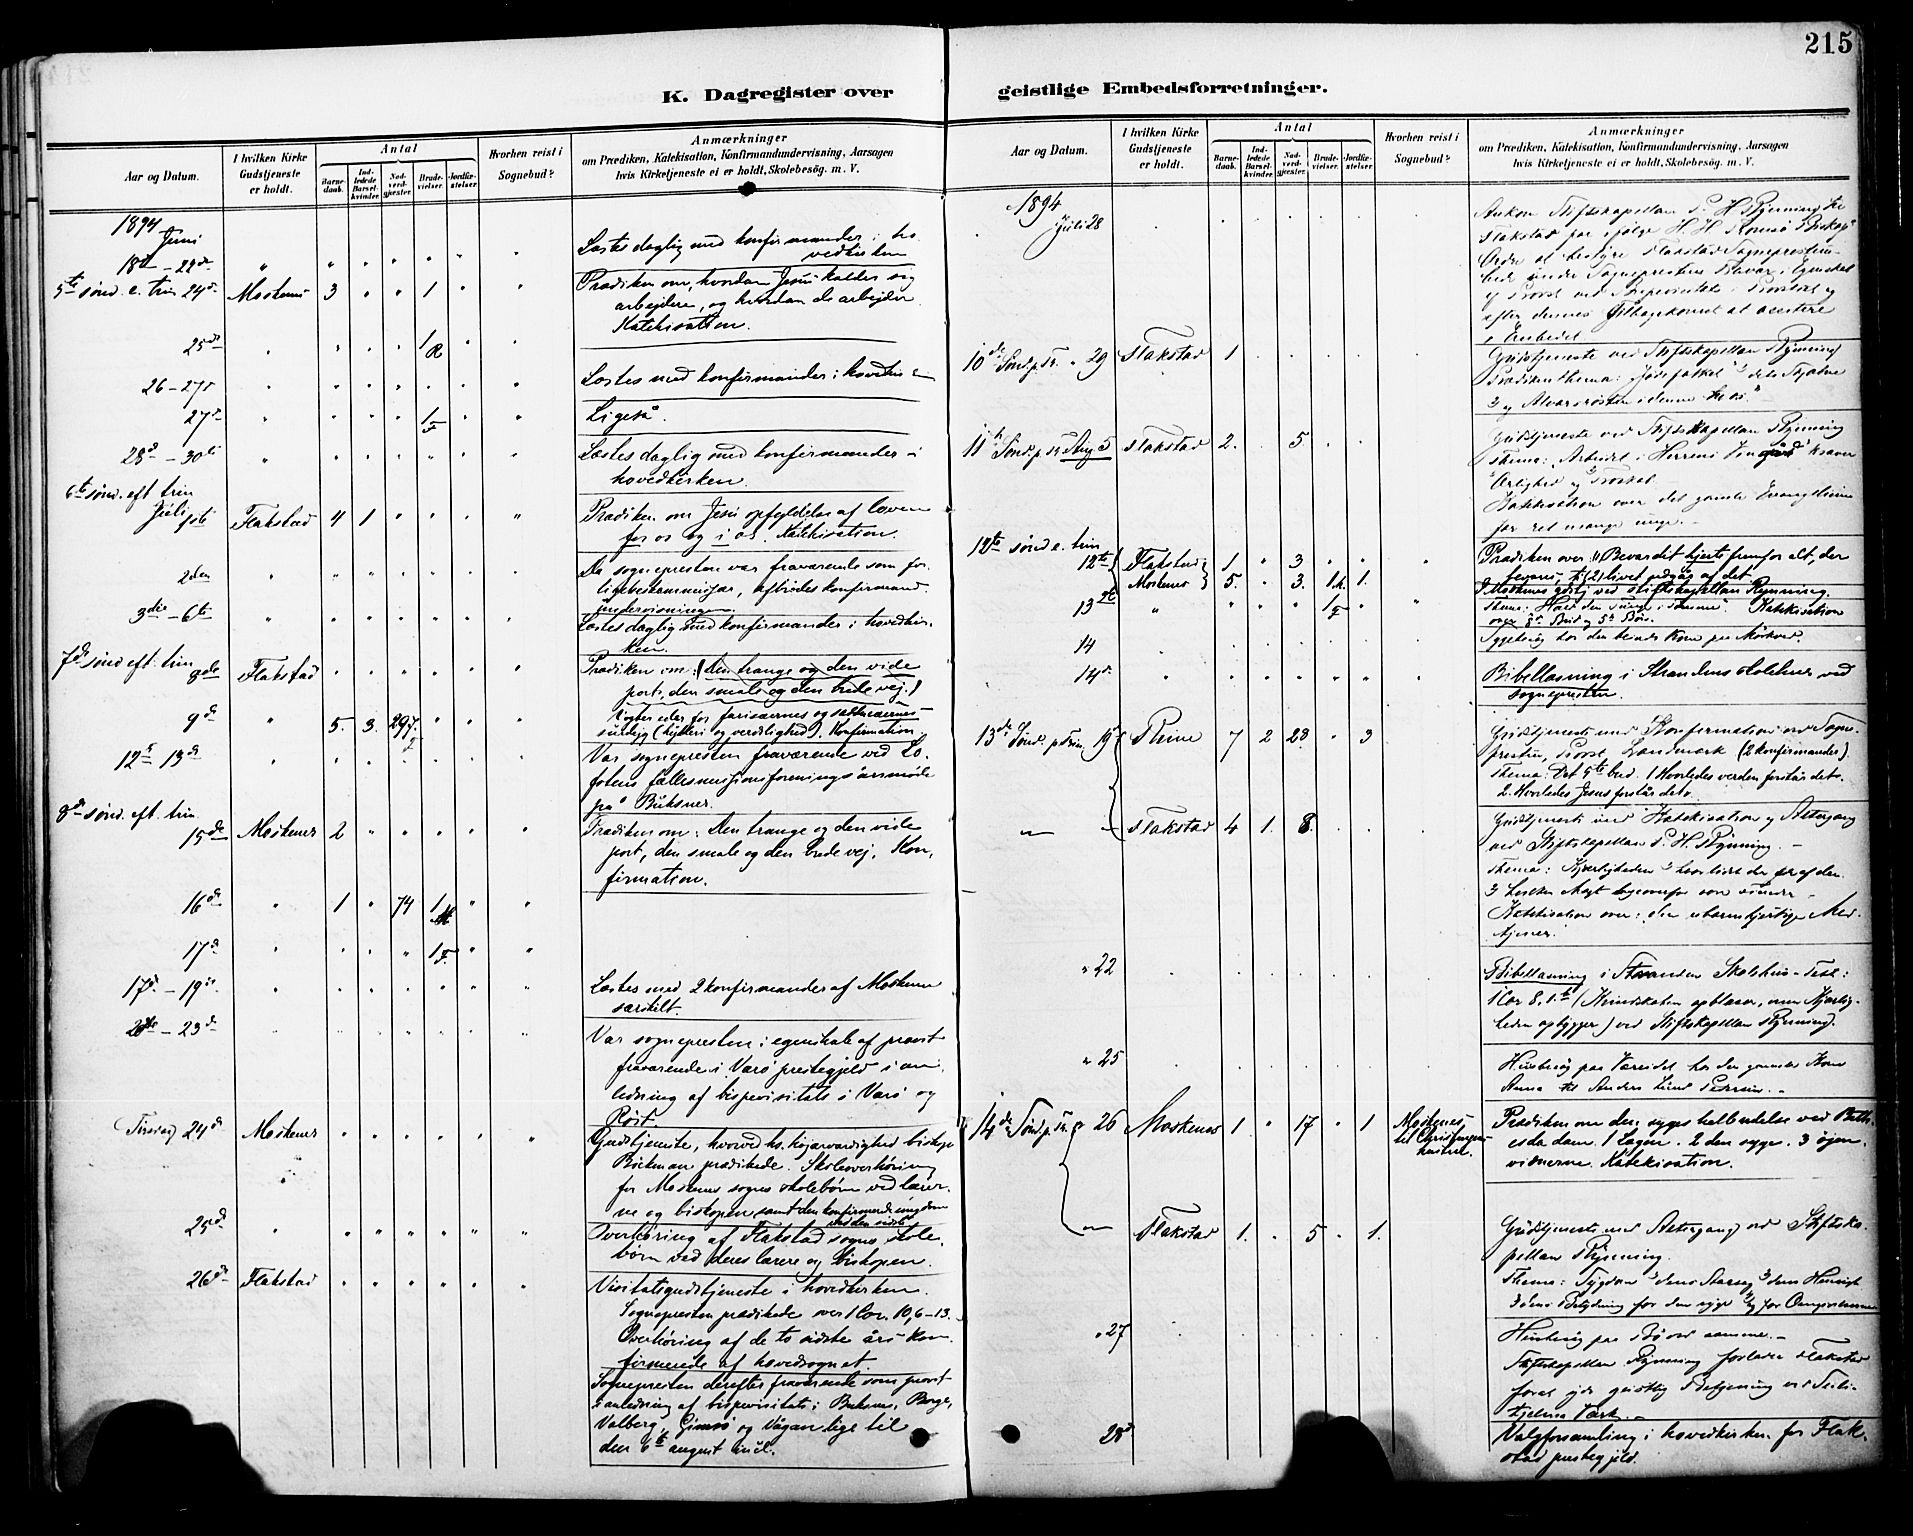 215
K. Dagregister over
geistlige Embedsforretninger.
Aar og Datum.
I hvilken Kirke
Gudstjeneste
er holdt.
Antal
Barne-
daab.
Ind-
ledede
Barsel-
kvinder.
Nad-
verd-
gjester.
Brude-
vielser.
Jordfæ-
stelser.
Hvorhen reist i
Sognebud?
Anmærkninger
om Prædiken, Katekisation, Konfirmandundervisning, Aarsagen
hvis Kirketjeneste ei er holdt, Skolebesøg. m. V.
1894
Juni
18de - 22de
Læstes daglig med konfirmander i ho-
vedkirken
5te sønd. e. trin 24de Moskenes 3 " " 1
Prædiken om, hvordan Jesus kalder sig
arbejdere, og hvordan de arbejder.
Katekisation.
25de 1 R
26 - 27de
Læstes med konfirmander i hovedkir
27de 1 F
Ligeså.
28de - 30te
Læstes daglig med konfirmander i
hovedkirken.
6te sønd. eft trin
Juli 1ste Flakstad 4 1
Prædiken om Jesu opfyldelse af loven
for os og i os. Katekisation.
2den
Da sognepresten var fraværende som for-
ligelseskommissær, aflystes konfirmand-
undervisningen.
3die - 6te
Læstes daglig med konfirmander i hovedkir-
ken.
7de sønd eft. trin
8de Flakstad
Prædiken om: (Den trange og den vide
port, den smale og den brede vej.)
9de " 5. 3. 297.
Vogter eder for farisæernes og saddukæernes
surdejg (hykleri og verdslighed). Konfirmation.
12te 13de
Var sognepresten fraværende ved Lo-
fotens fællesmissionsforenings årsmøde
på Buksnes.
8de sønd. eft. trin.
15de Moskenes 2
Prædiken om: Den trange og den vide
port, den smale og den brede vej. Kon-
firmation.
16de " 1 " 74 1 M
17de 1 F.
17de - 19de
Læstes med 2 konfirmander af Moskenes
særskilt.
20de - 23de
Var sognepresten i egenskab af provst
fraværende i Værø prestegjeld i an-
ledning af bispevisitats i Værø og
Røst.
Tirsdag 24de Moskenes
Gudstjeneste, hvorved hs. højærværdighed biskop
Bøckman prædikede. Skoleoverhøring
for Moskenes sogns skolebørn ved lærer-
ne og biskopen samt den konfirmerede ungdom
25de
Overhøring af Flakstad sogns skole-
børn ved deres lærere og biskopen.
26de Flakstad
Visitatsgudstjeneste i hovedkirken.
Sognepresten prædikede over 1 Cor. 10, 6-13.
Overhøring af de to sidste års kon-
firmerede af hovedsognet.
Sognepresten derefter fraværende som provst
i anledning af bispevisitats i Buksnes, Borge,
Valberg, Gimsø og Vågan lige til
den 6te august inkl.
Aar og Datum.
I hvilken Kirke
Gudstjeneste
er holdt.
Antal
Barne-
daab.
Ind-
ledede
Barsel-
kvinder.
Nad-
verd-
gjester.
Brude-
vielser.
Jordfæ-
stelser.
Hvorhen reist i
Sognebud?
Anmærkninger
om Prædiken, Katekisation, Konfirmandundervisning, Aarsagen
hvis Kirketjeneste ei er holdt, Skolebesøg. m. V.
1894
Juli 28
Ankom Stiftskapellan P. H. Rynning til
Flakstad for ifølge H. H. Tromsø Biskops
Ordre at bestyre Flakstad Sogneprestem-
bede under Sogneprestens Fravær i Egenskab
af Provst ved Bispevisitats i Provstiet og
efter dennes Tilbagekomst at assistere
i Embedet.
10de Sønd. p. Tr. " 29 Flakstad 1
Gudstjeneste ved Stiftskapellan Rynning
Prædikenthema: Jødefolket dets Skjæbne
og Alvorsrøsten i denne til os
11te Sønd. p. Tr. Aug 5 Flakstad 2. 5
Gudstjeneste ved Stiftskapellan Rynning
Thema: Arbeidet i Herrens Vingård kræver
Ærlighed og Troskab.
Katekisation over det gamle Evangelium
for ret mange unge.
12te sønd e. trin
12te Flakstad 1 " 3
Moskenes 5. " 3. 1 1.
Prædiken over "Bevar dit hjerte fremfor alt, der
bevares, ti (2) livet udgår af det
I Moskenes gdstj ved stiftskapellan Rynning.
13de " 1 F
Katekisation
14
14de
Bibellæsning i Strandens skolehus ved
sognepresten.
13de Sønd. p Trin. 19de Reine 7 2 23 " 3
Gudstjeneste med Konfirmation ved Sogne-
presten, Provst Landmark (2 konfirmander)
Thema: Det 5te bud. 1 Hvorledes verden forstår det.
2. Hvorledes Jesus forstår det.
Flakstad 4 1. 8.
Gudstjeneste med Katekisation og Altergang
ved Stiftskapellan P. H. Rynning.
Thema: Kjærligheden
Katekisation over: den ubarmhjertige Med-
tjener.
" 22
Bibellæsning i Stranden Skolehus - Text:
1 Cor 8. 1. (Kundskaben opblæser, men Kjærlig-
heden opbygger) ved Stiftskapellan Rynning.
" 25
Husbesøg
14de Sønd. p. Tr. 26 Moskenes 1 " 17 " 1
Moskenes
Prædiken om den syges helbredelse ved Beth-
esda dam. 1 Lægen. 2 den syge. 3 øjen-
vidnerne. Katekisation.
Flakstad 1. " 5 " 1.
Gudstjeneste med Altergang ved Stiftska-
pellan Rynning.
Thema: Sygdom
" 27
Stiftskapellan Rynning forlader Flakstad
28de
Valgforsamling i hovedkirken for Flak-
stad prestegjeld.